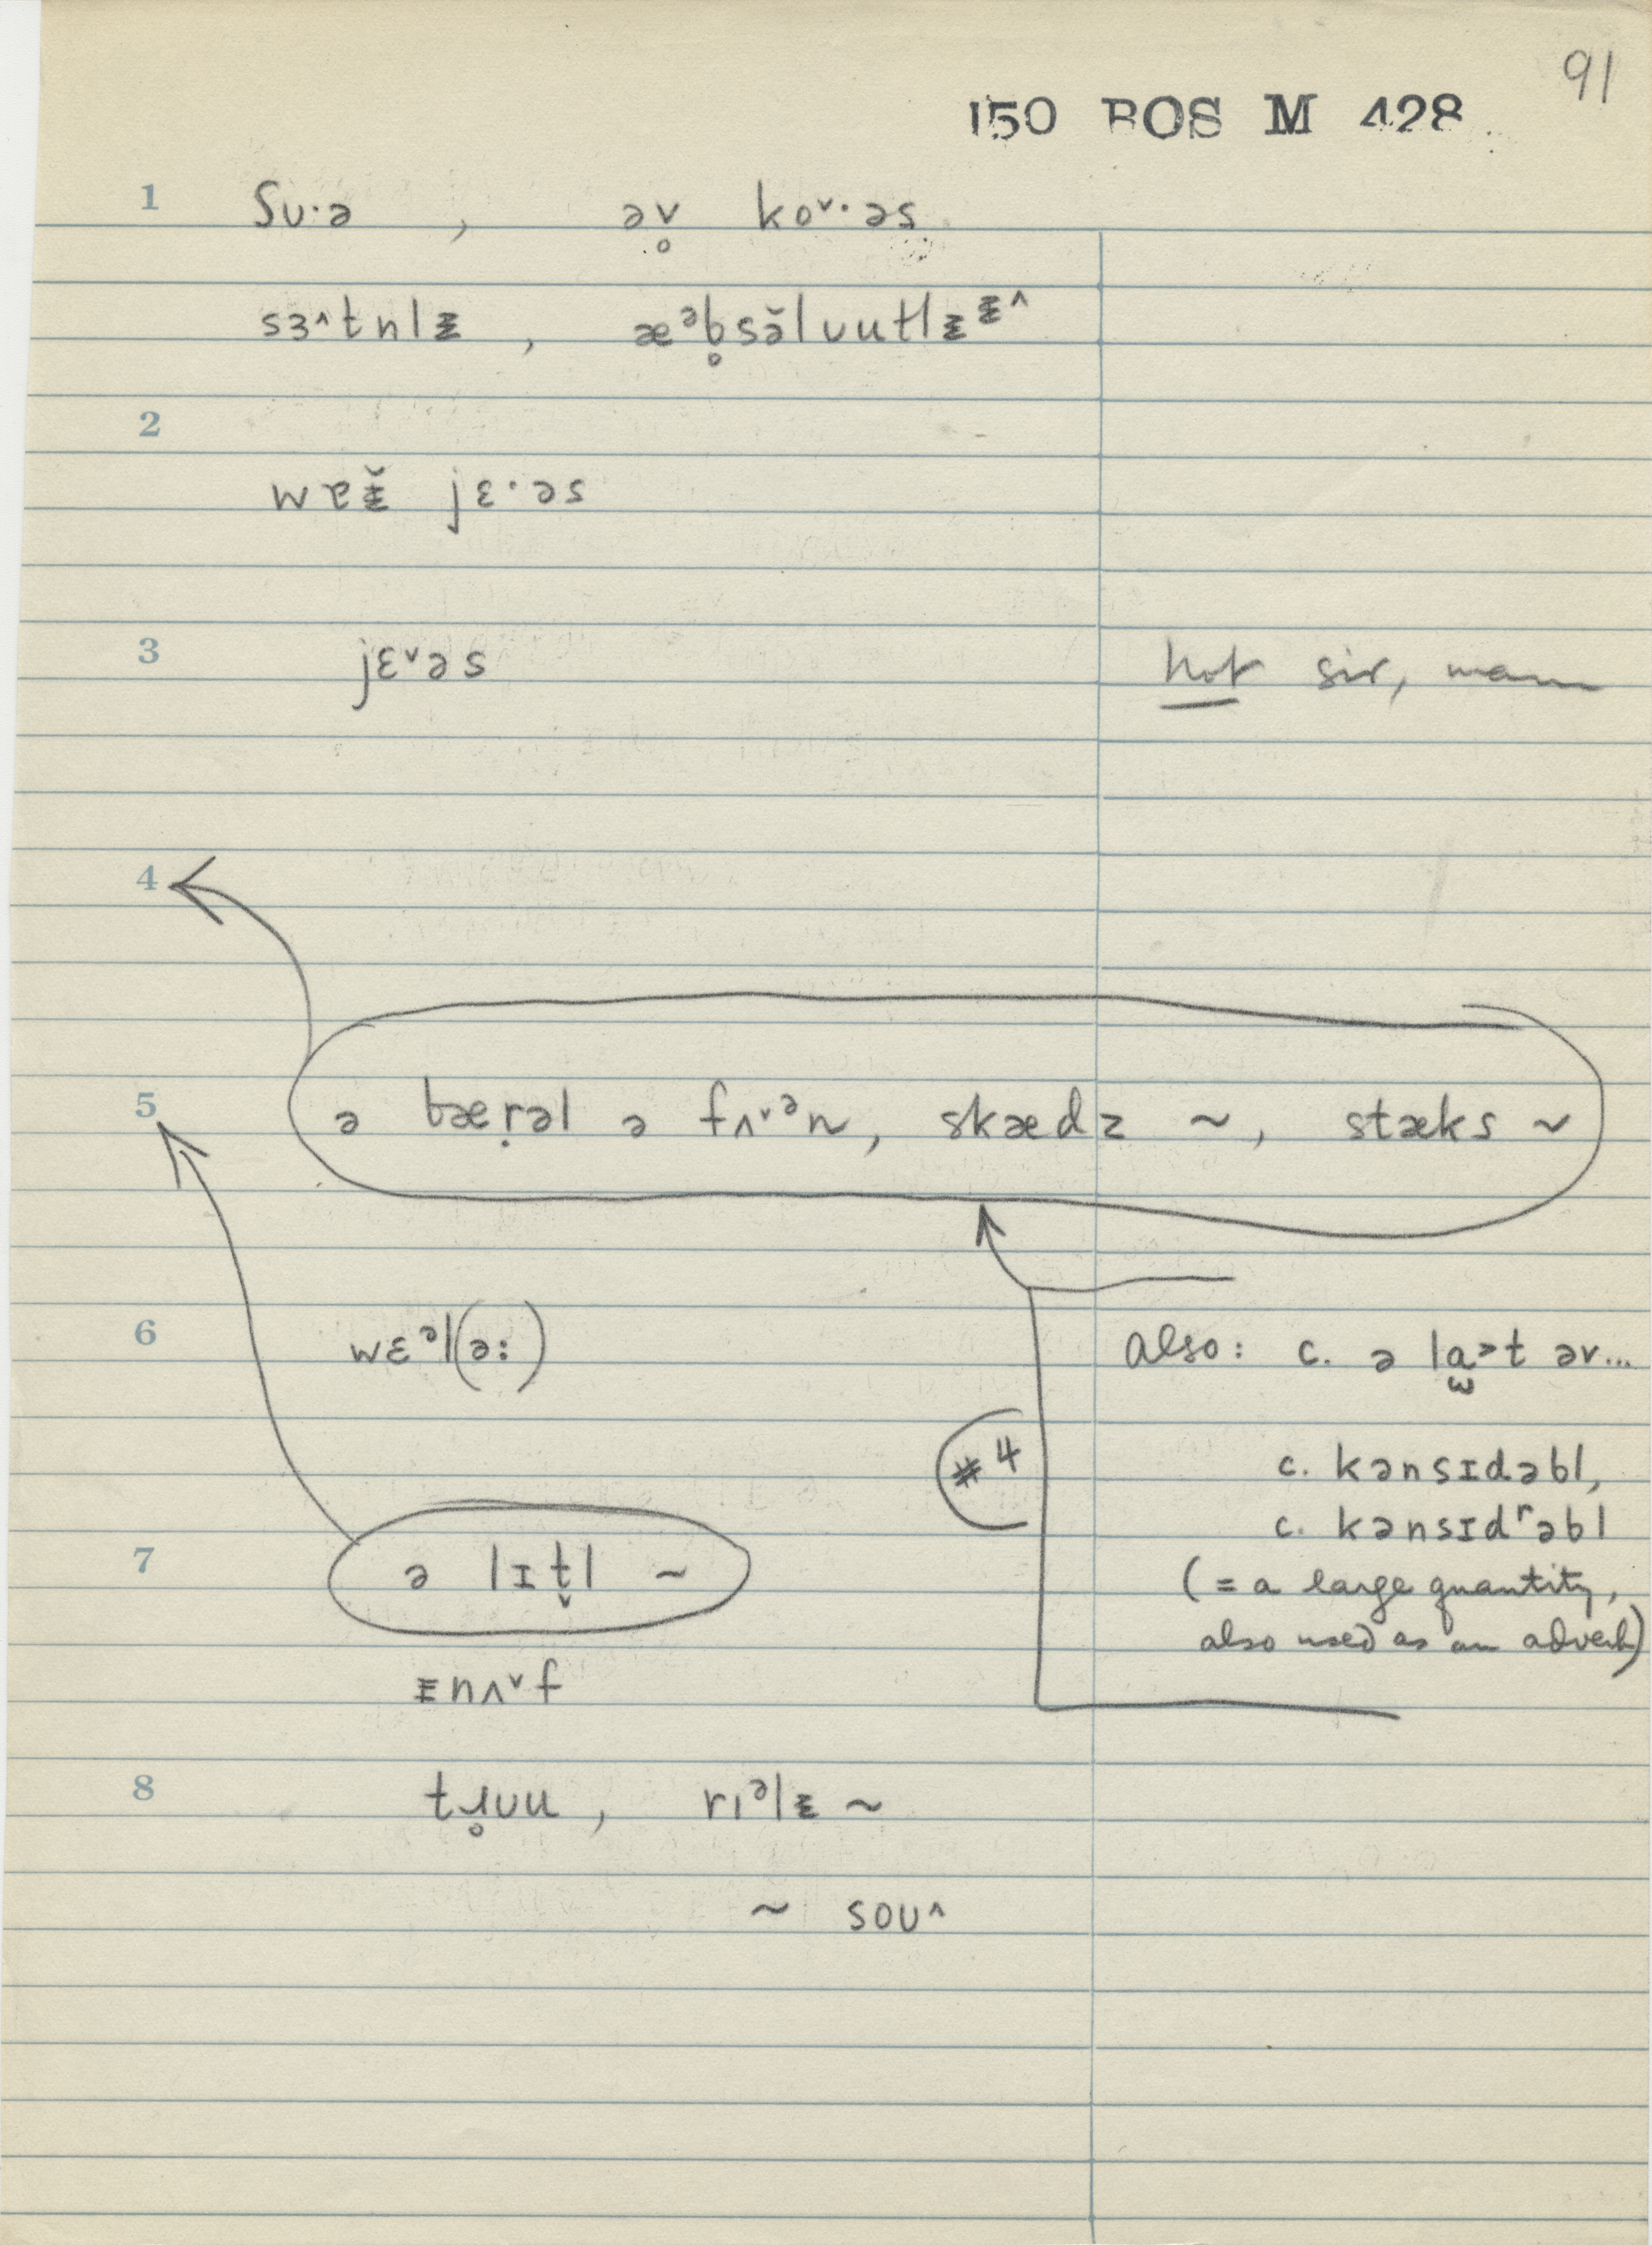 91
150 BOS M 428
1 ʃʊ·ə , əv̥ koˇ·əs
sɜ^tnlᵻ , æᵊb̥sə̆lʊutlᵻᵻ^
2
wɐᵻ̆ jɛ·əs
3 jɛˇəs not sir, mam
4
5 ə bæṛəl ə fʌˇᵊn, skædz ~, stæks ~
6 wɛᵊl(ə:) also: c. ə lɑ̫>t əv...
#4 c. kənsɪdəbl,
c. kənsɪdʳəbl
7 ə lɪt̬l ~ (= a large quantity,
also used as an adverb)
ᵻnʌˇf
8 tɹ̥ʊu , rɪᵊlᵻ ~
~ soʊ^